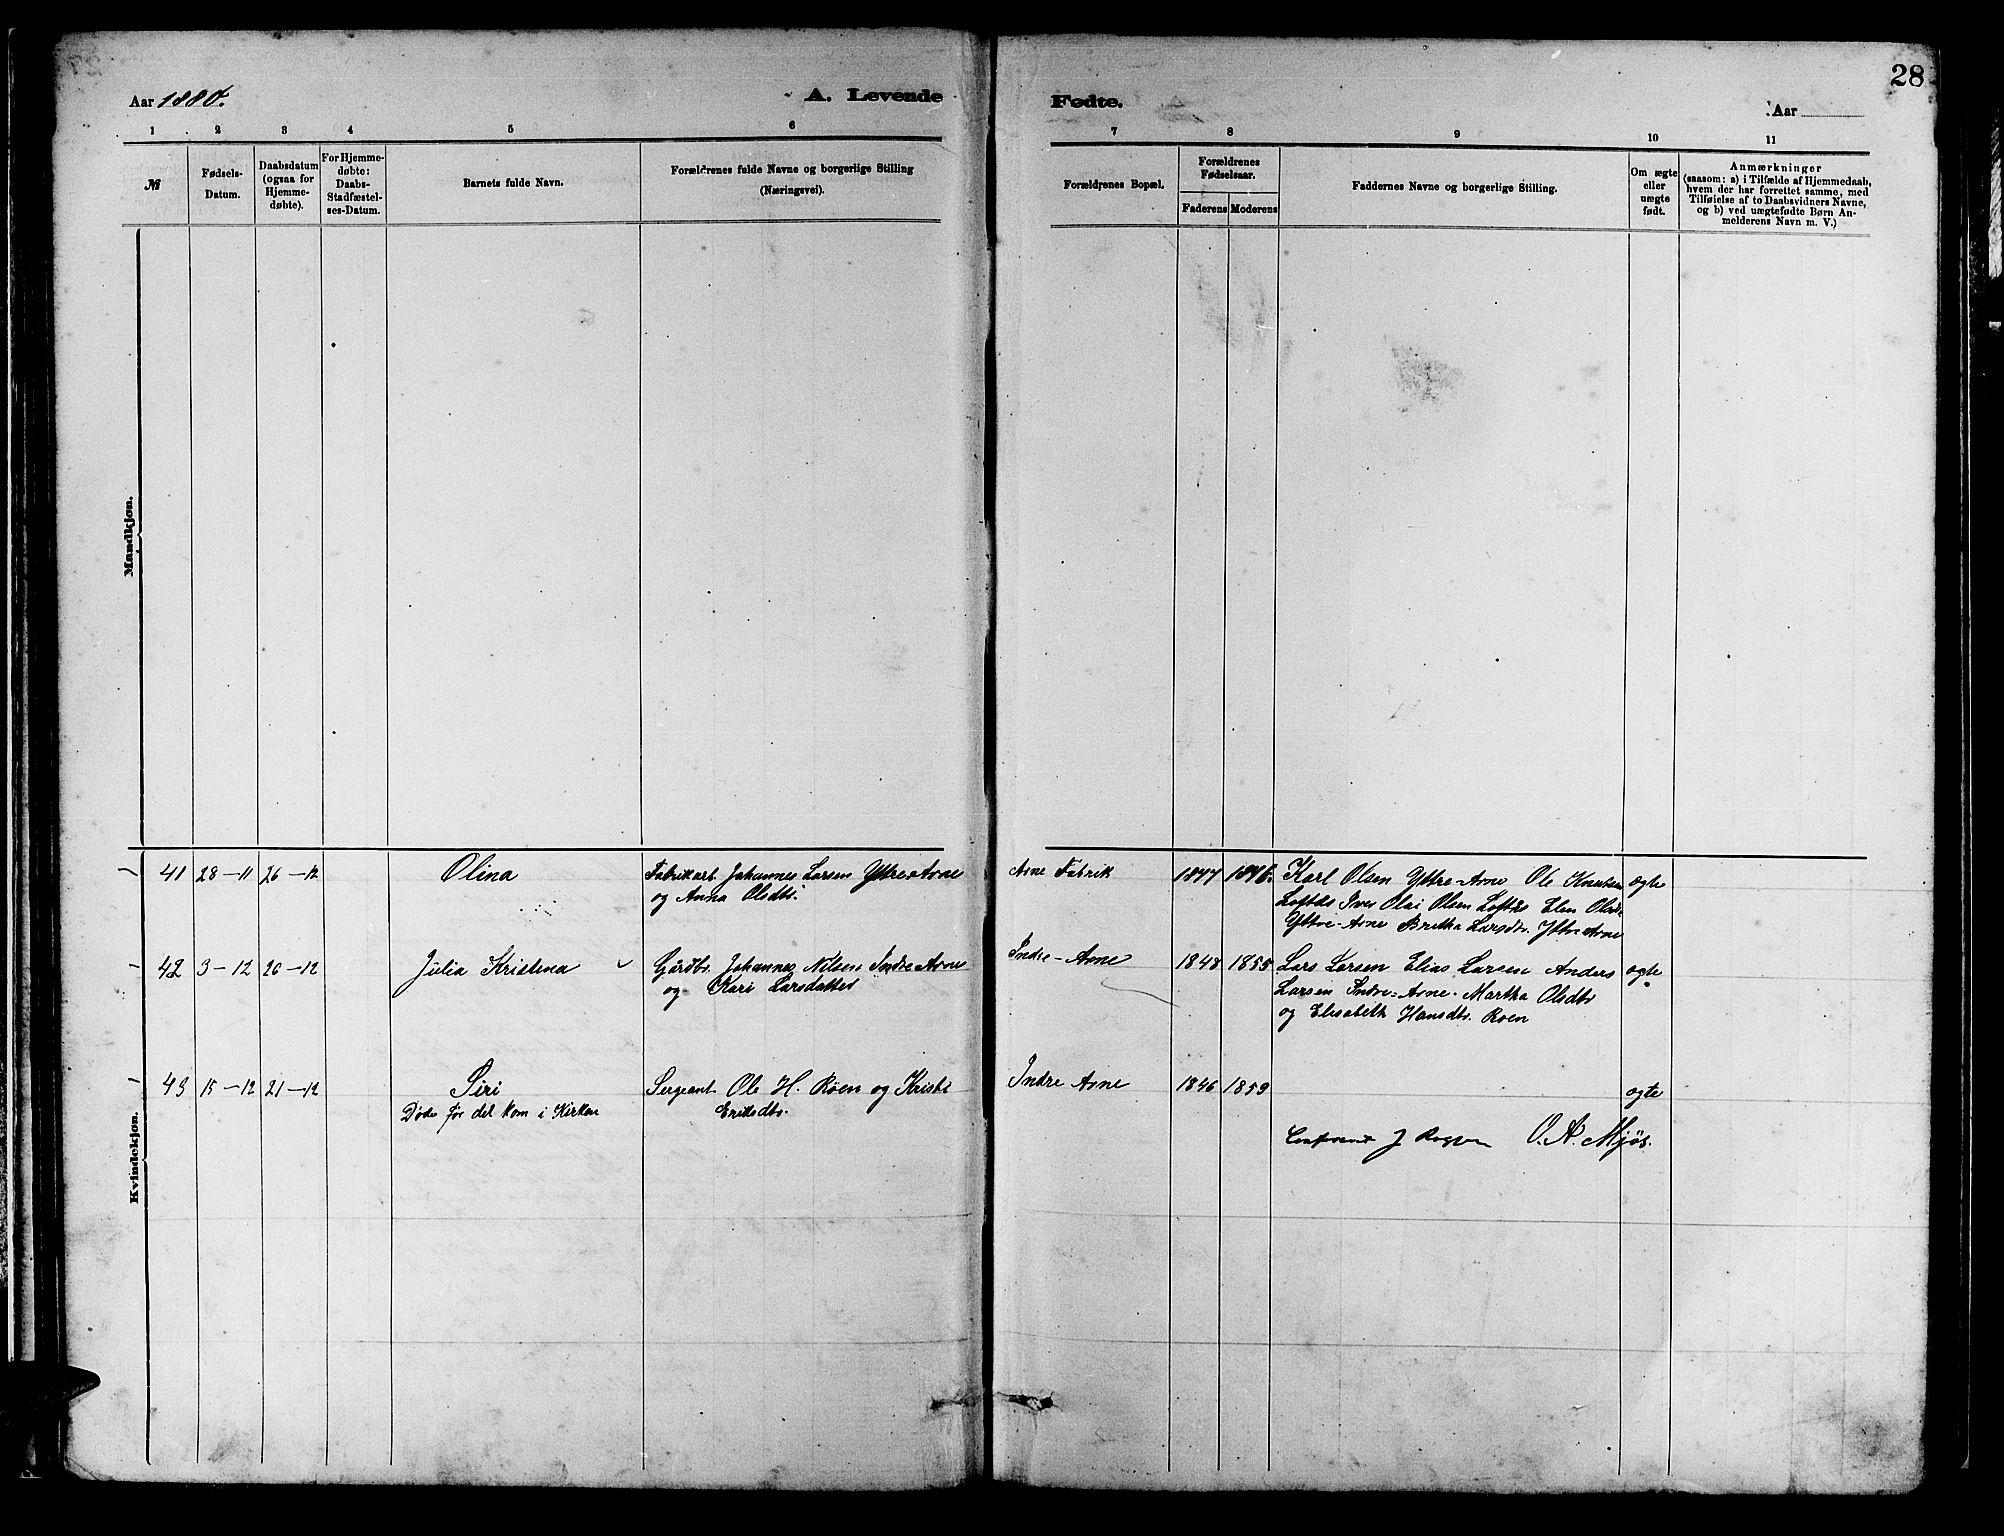 28
Aar 1880.
A. Levende
Fødte.
Aar
1 2 3 4 5 6
7 8 9 10 11
№
Fødsels-
Datum.
Daabsdatum
(ogsaa for
Hjemme-
døbte).
For Hjemme-
døbte:
Daabs-
Stadfæstel-
ses-Datum.
Barnets fulde Navn.
Forældrenes fulde Navne og borgerlige Stilling
(Næringsvei).
Forældrenes Bopæl.
Forældrenes
Fødselsaar.
Faderens Moderens
Faddernes Navne og borgerlige Stilling.
Om ægte
eller
uægte
født.
Anmærkninger
(saasom: a) i Tilfælde af Hjemmedaab,
hvem der har forrettet samme, med
Tilføielse af to Daabsvidners Navne,
og b) ved uægtefødte Børn An-
melderens Navn m. V.)
Mandkjøn.
Kvindekjøn.
41 28-11 26-12 Olina Fabrikarb. Johannes Larsen Ytre Arne
og Anna Olsdtr.
Arne Fabrik 1847 1846. Karl Olsen Yttre-Arne Ole Knutsen ogte
Loftås Iver Olai Olsen Loftås Elen Olsdtr
Yttre-Arne Britha Larsdtr. Yttre Arne
42 3-12 26-12 Julia Kristina Gårdbr. Johannes Nilsen Indre Arne
og Kari Larsdatter
Indre-Arne 1848 1855 Lars Larsen Elias Larsen Anders ogte
Larsen Indre-Arne. Martha Olsdtr
og Elisabeth Hansdtr. Roen
43 15-12 21-12 Siri Sergeant Ole H. Röen og Kristi
Døde før det kom i Kirken Eriksdtr.
Indre Arne 1846 1859 ogte
J O. A. Mjös.